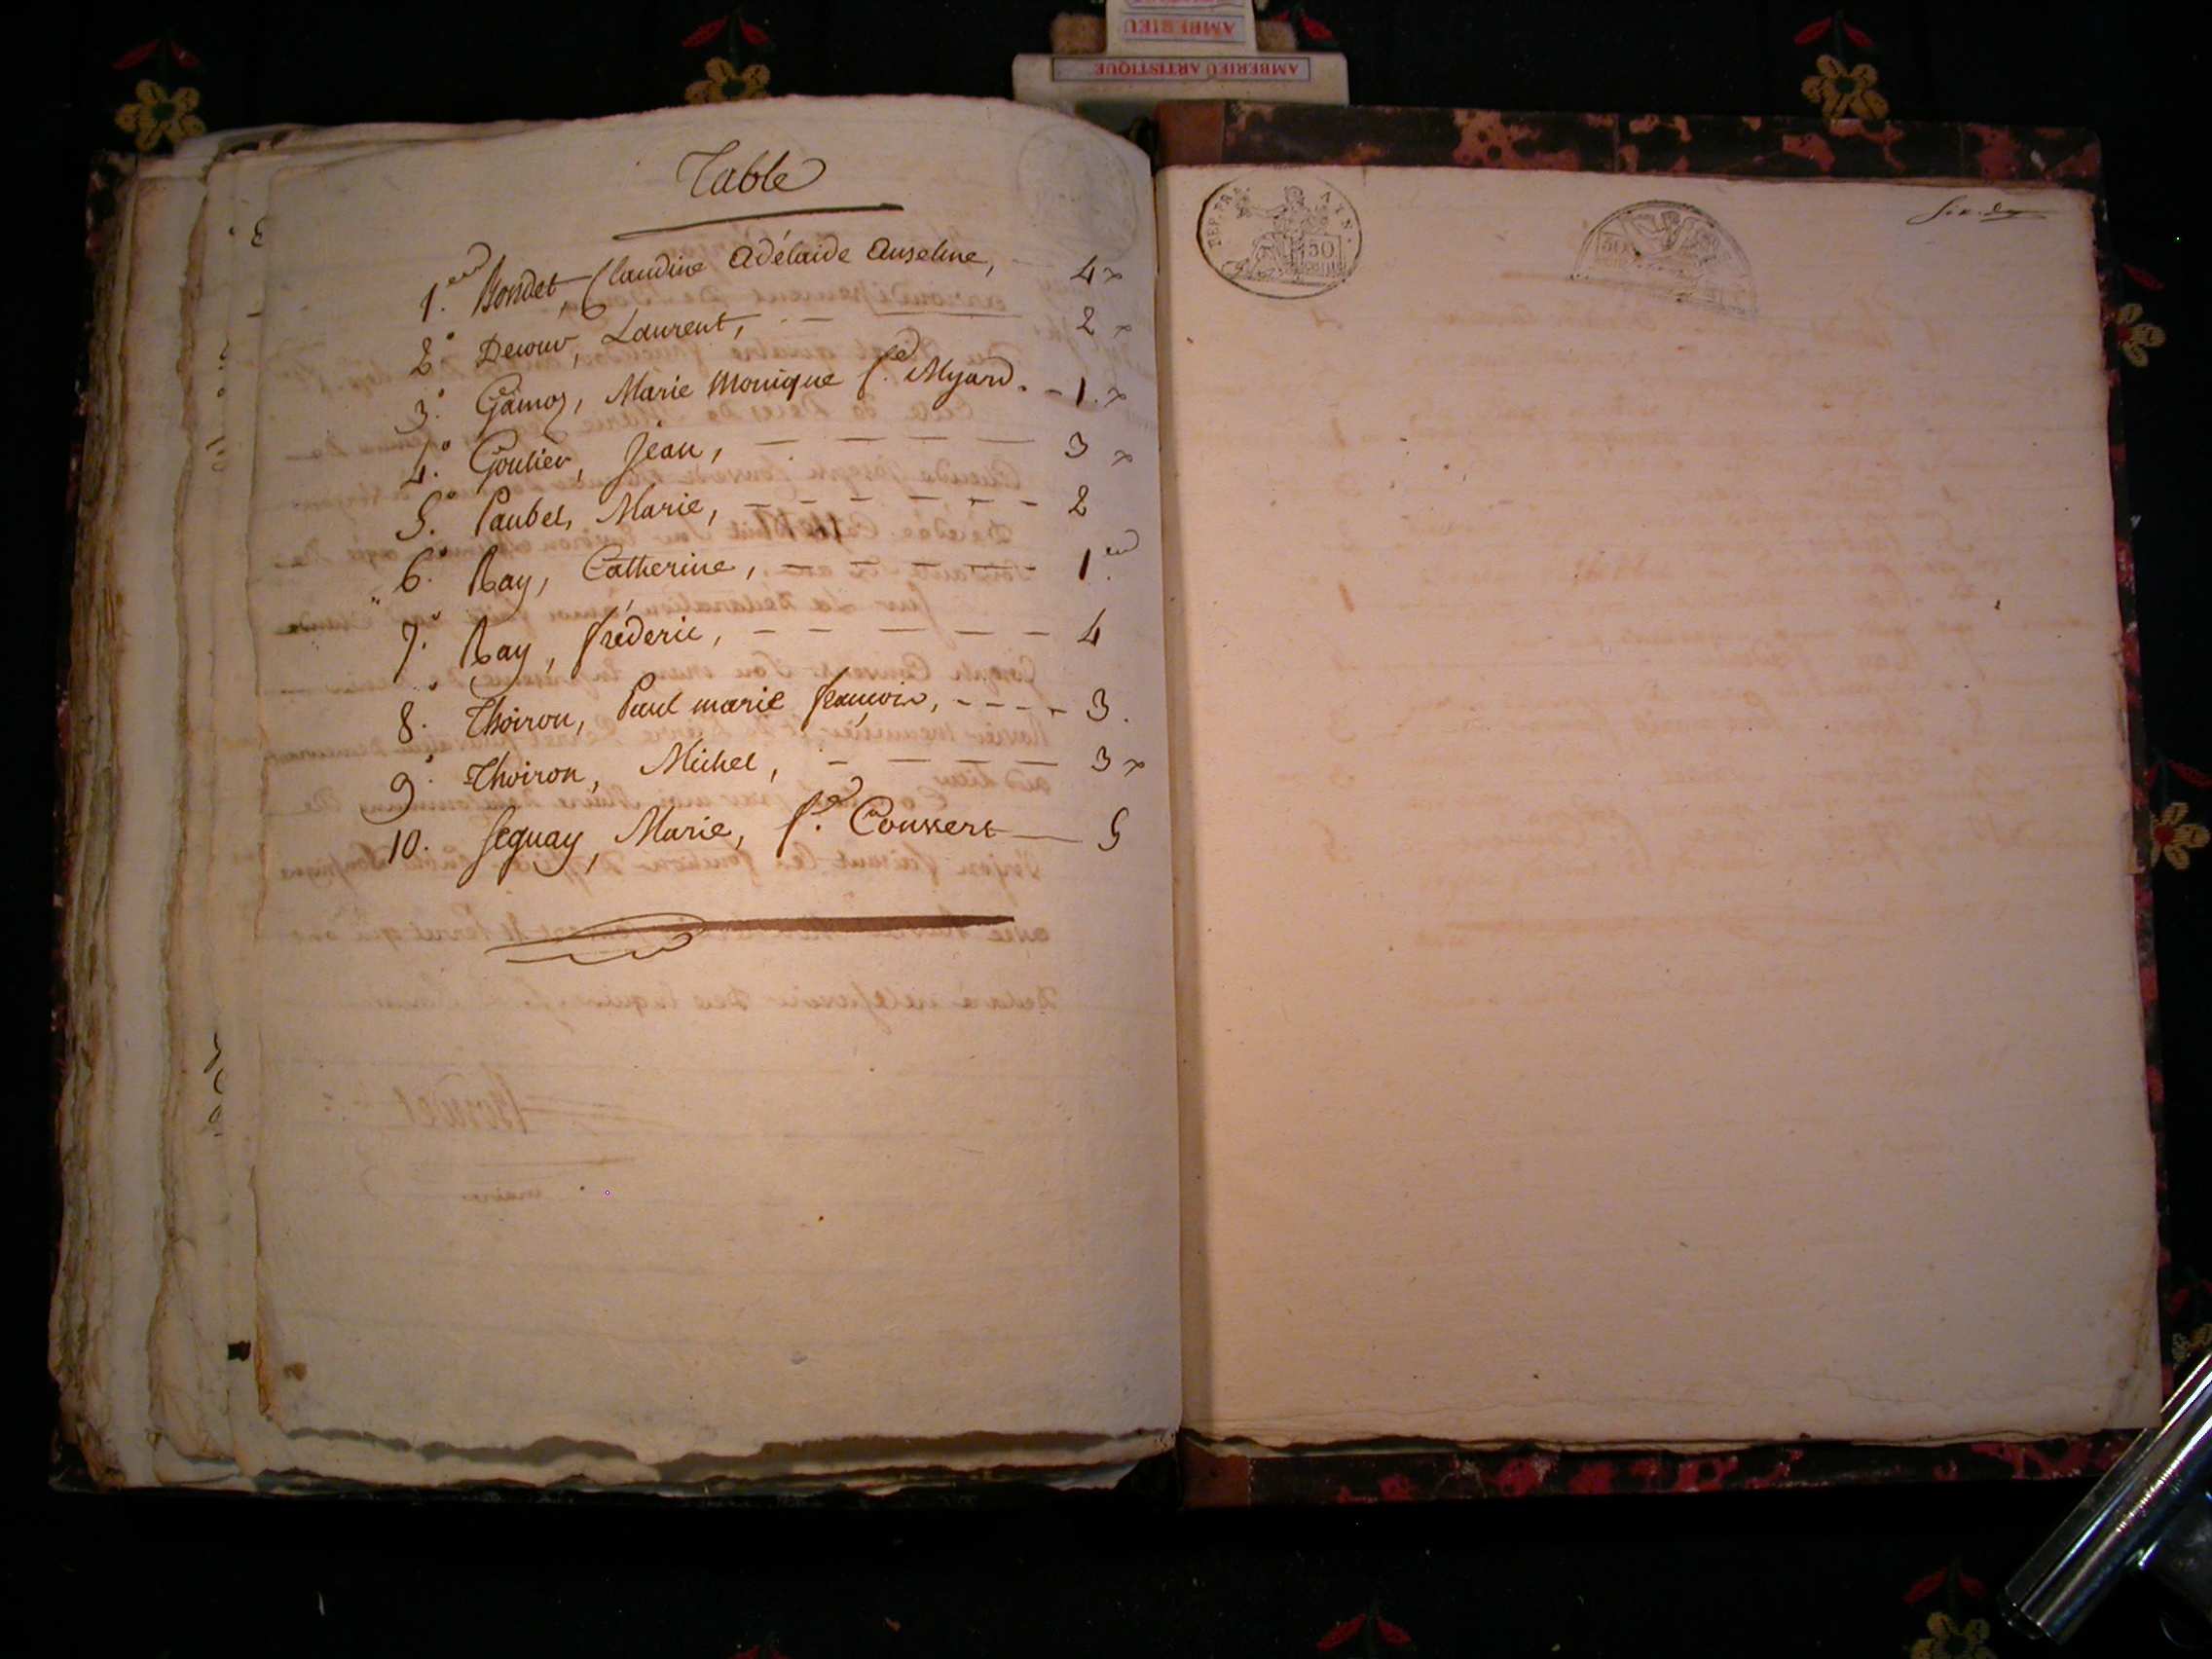 AMBERIEU
AMBERIEU ARTISTIQUE
Table
1.er Bondet, Claudine Adélaide Anselme, 4
2° Decour, Laurent, 2
3° Gamoz, Marie Monique f.e Myard. - 1.
4° Goutier, Jean, 3
5° Paubel, Marie, 2
6° Ray, Catherine, 1.er
7° Ray, fréderic, 4
8° Thoiron, Paul marie françois, 3.
9° Thoiron, Michel, 3
10. Seguay, Marie, f.e Convert 5
DEP. PR. AIN.
50